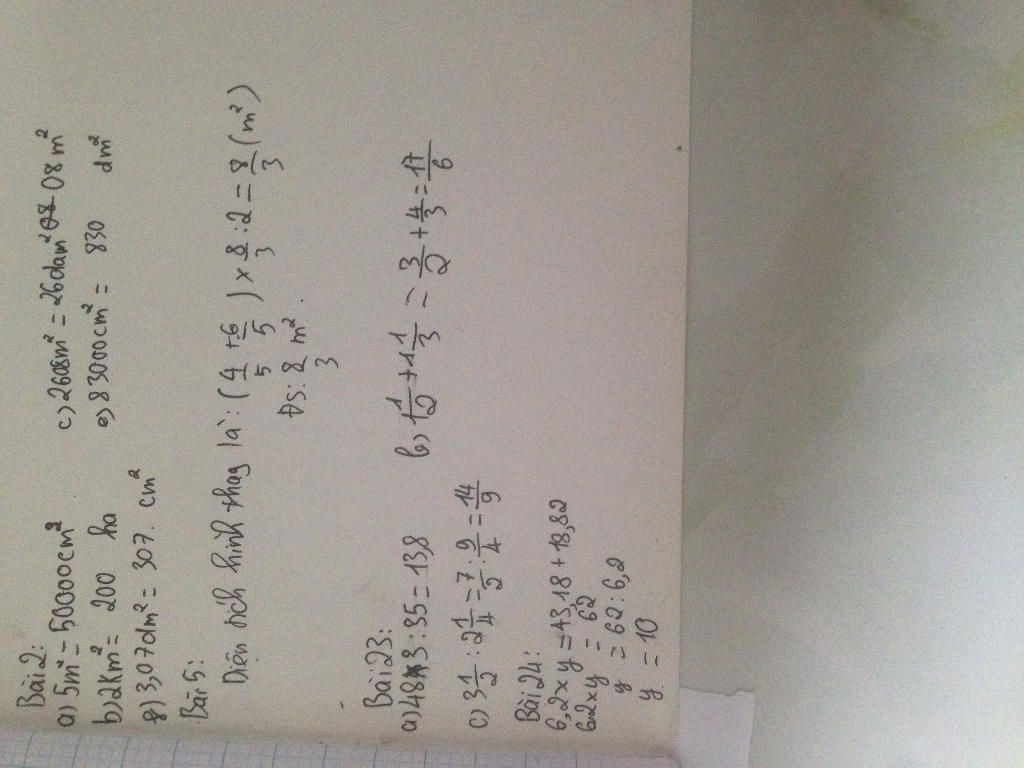 Bài 2:
a) 5m² = 50000cm² c) 2608m² = 26dam² 08 08m²
b) 2km² = 200 ha e) 83000cm² = 830 dm²
g) 3,07dm² = 307. cm²
Bài 5:
Diện tích hình thag là: (4/5 + 6/5) x 8/3 : 2 = 8/3 (m²)
Đs: 8/3 m².
Bài 23:
a) 483 : 35 = 13,8 b) 1 1/2 + 1 1/3 = 3/2 + 4/3 = 17/6
c) 3 1/2 : 2 1/4 = 7/2 : 9/4 = 14/9
Bài 24:
6,2 x y = 43,18 + 18,82
6,2 x y = 62
y = 62 : 6,2
y = 10